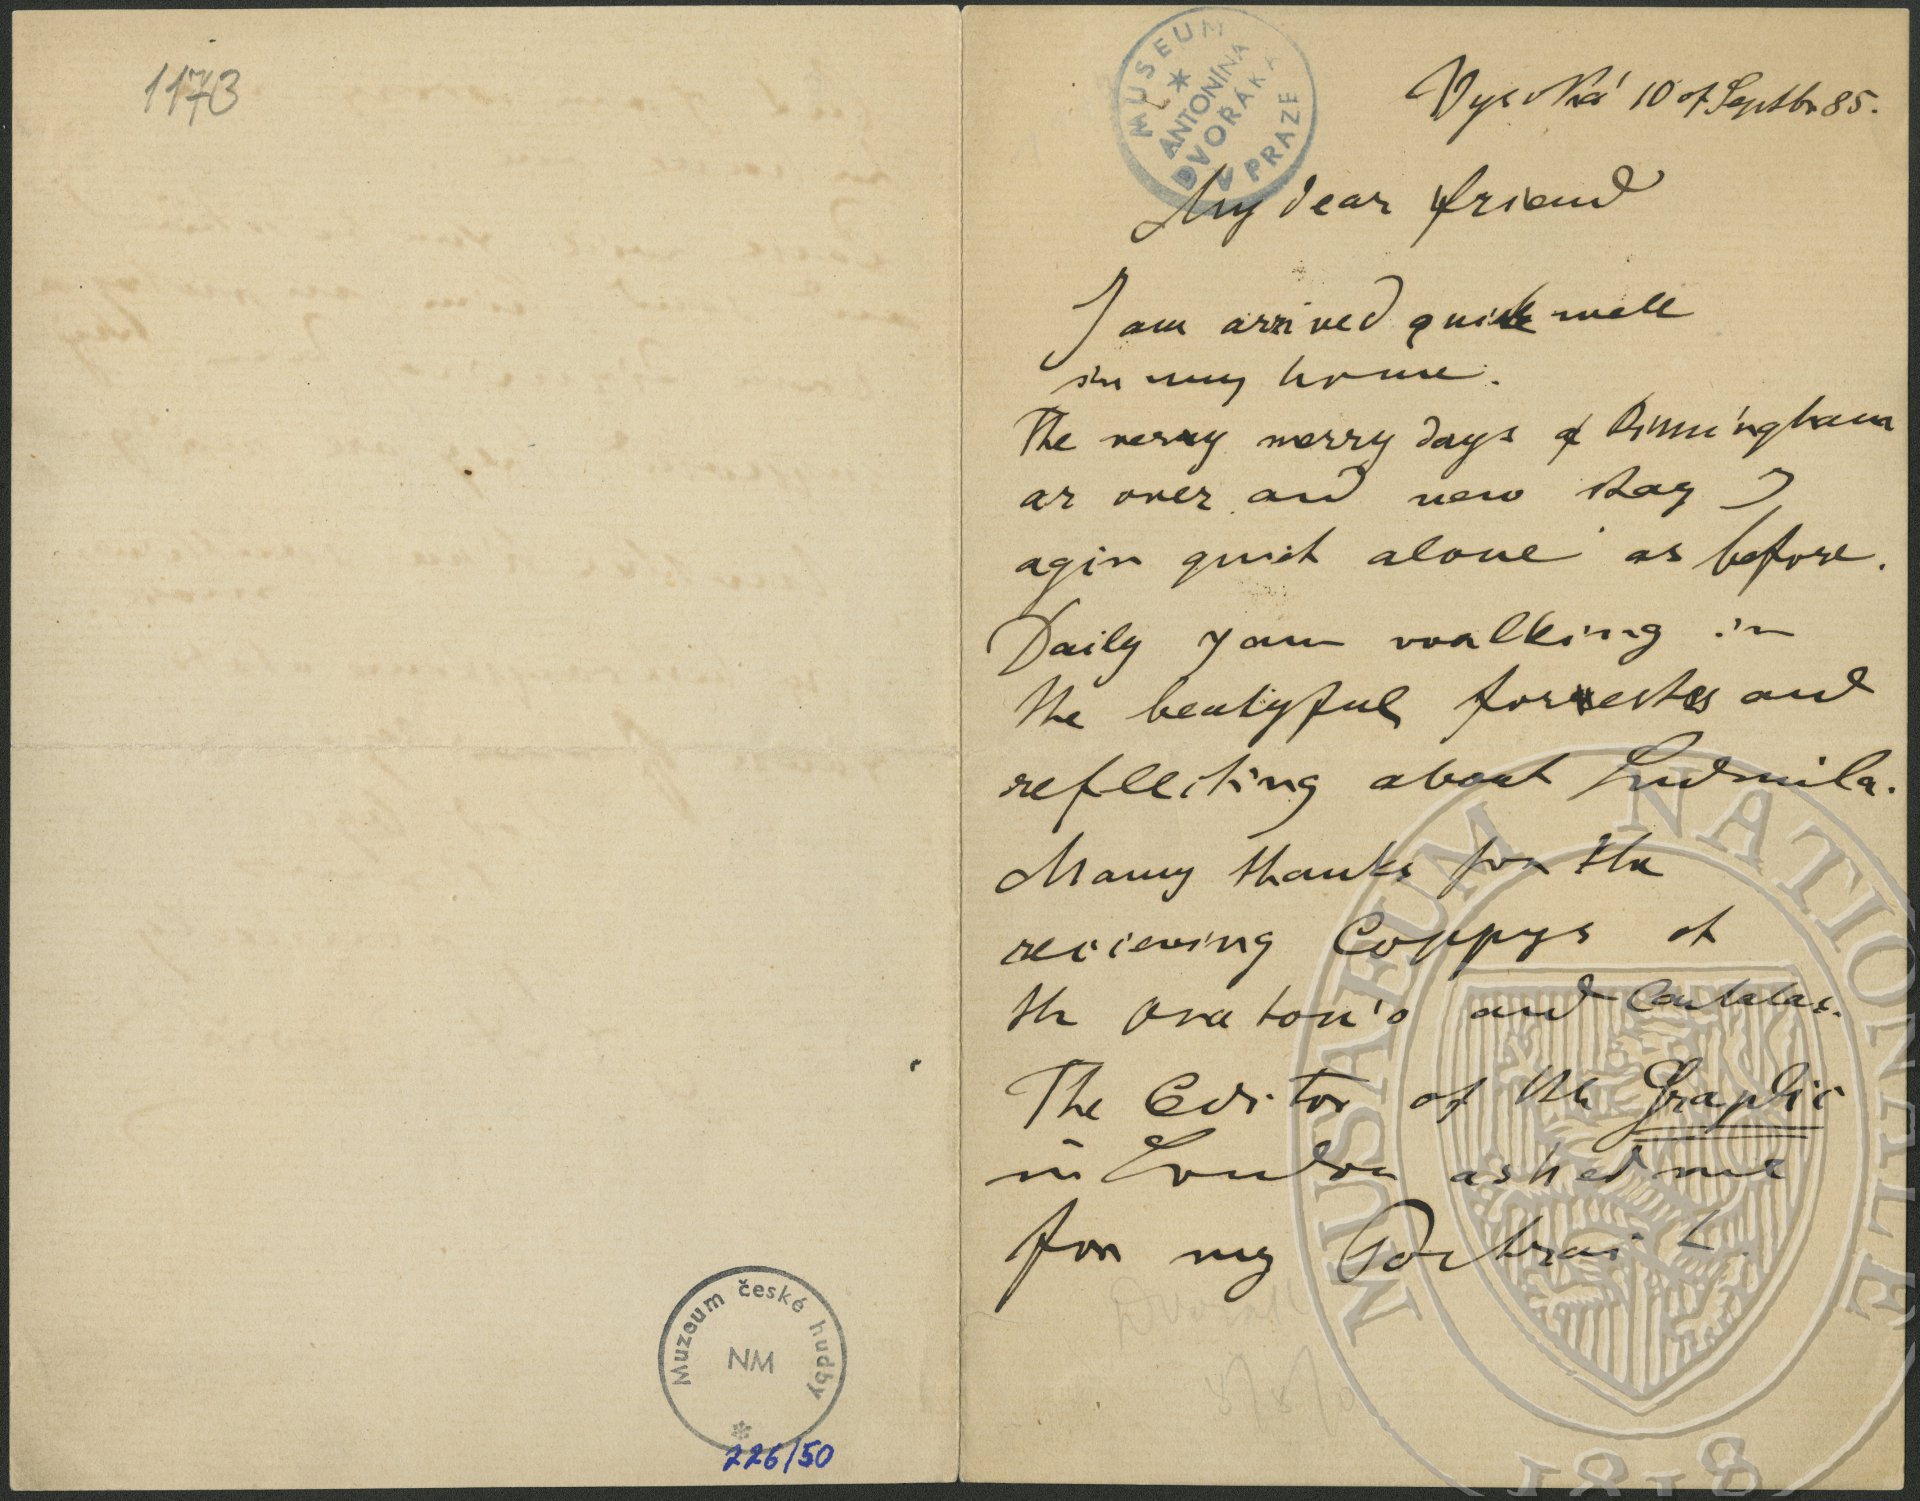 1173
MUSEUM
ANTONÍNA
DVOŘÁKA
V PRAZE
Vysoká 10 of Septbr 85.
My dear friend
I am arrived quite well
in my home.
The verry merry days of Birmingham
ar over and now stay I
agin quiet alone as before.
Daily I am walking in
the beutyful forrests and
reflecting about Ludmila.
Many thanks for the
recieving Coppys of
the Oratorio and Cantatas.
The Editor of the Graphic
in London asked me
for my Portrait.
Muzeum české hudby
NM
226/50
MUSAEUM NATIONALE
1818